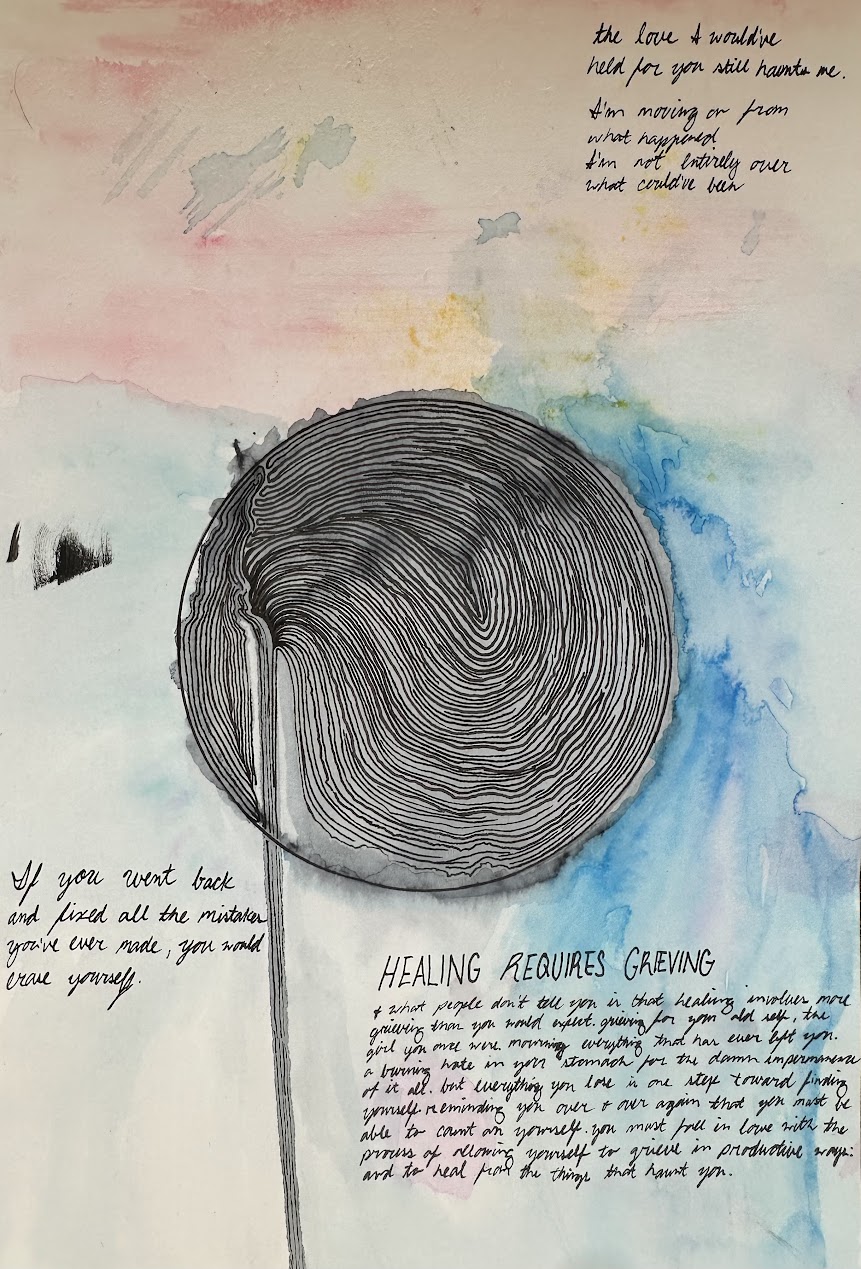 the love I would've
held for you still haunts me.
I'm moving on from
what happened
I'm not entirely over
what could've been
If you went back
and fixed all the mistakes
you've ever made, you would
erase yourself.
HEALING REQUIRES GRIEVING
& what people don't tell you is that healing involves more
grieving than you would expect. grieving for your old self, the
girl you once were. mourning everything that has ever left you.
a burning hate in your stomach for the damn impermanence
of it all. but everything you lose is one step toward finding
yourself. reminding you over & over again that you must be
able to count on yourself. you must fall in love with the
process of allowing yourself to grieve in productive ways.
and to heal from the things that haunt you.